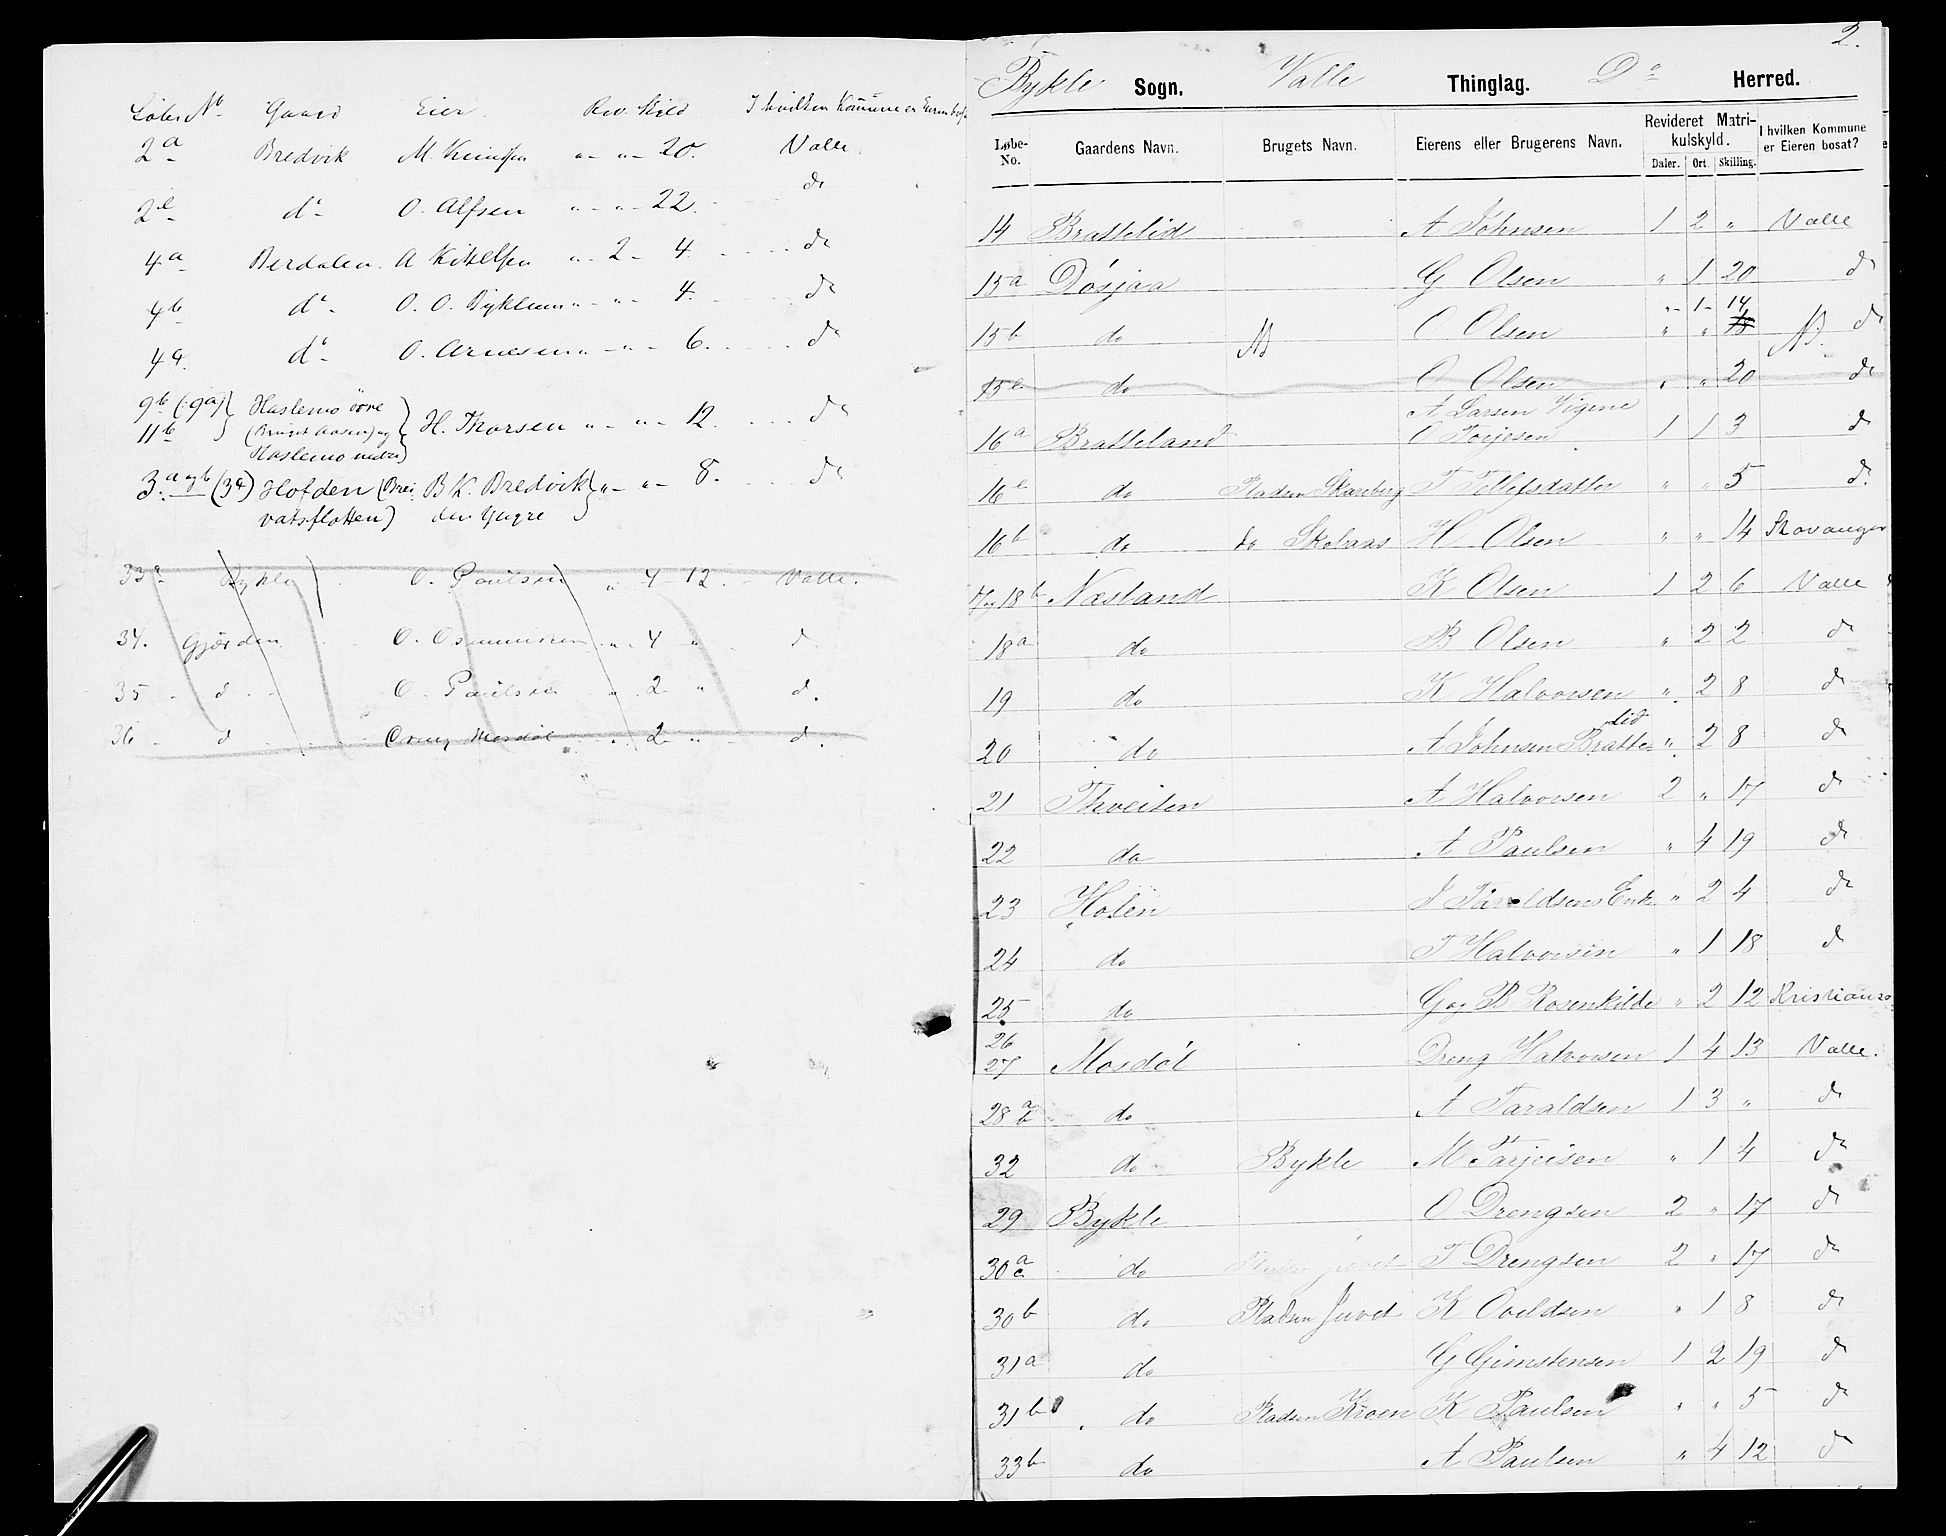 Løbe No Gaard Eier Rev. Skyld I hvilken Kommune er Eieren bosat
2a Bredvik M. „ - „ - 20. Valle.
2b do O. Alfsen „ - „ - 22. do
4a Berdalen. A Kittelsen „ - 2 - 4. do
4b do O. O. Byklum „ - „ - 4. do
4c. do O. Arnesen „ - „ - 6. do
9b (9a) Haslemo øvre
11b (Bruget Aasen) og H. Thorsen „ - „ - 12. do
Haslemo nedre)
3. a og b (3a) Hofden (Brei B K. Bredvik „ - „ - 8. do
vatsflotten) den Yngre
33a Bykle O. Paulsen „ 4 - 12. Valle.
34. Gjørden O. Osmundsen „ 4 „ d.
35 d. O. Paulsen „ 2 „ d.
36 d Dreng Mosdøl „ 2 „ d.
2.
Bykle Sogn. Valle Thinglag. Do Herred.
Løbe-No. Gaardens Navn. Brugets Navn. Eierens eller Brugerens Navn. Revideret Matrikulskyld. Daler. Ort. Skilling. I hvilken Kommune er Eieren bosat?
14 Brattelid A Johnsen 1 2 „ Valle
15a Døsjaa G Olsen „ 1 20 do
„ - 1 - 14
15b do NB O Olsen „ „ 18 NB. do
15c do O Olsen „ „ 20 do
A Larsen Vigene
16a Bratteland O Torjesen 1 1 3 do
16c do Pladsen Skareberg T Tellefsdatter „ „ 5 do
16b do do Skolaas H Olsen „ „ 14 Stavanger
17 og 18b Næsland K Olsen 1 2 6 Valle
18a do B Olsen „ 2 2 do
19 do K Halvorsen „ 2 8 do
20 do A Johnsen Brattelid „ 2 8 do
21 Thveiten A Halvorsen 2 „ 17 do
22 do A Paulsen „ 4 19 do
23 Holen J Taraldsens Enke „ 2 4 do
24 do T Halvorsen „ 1 18 do
25 do G og B Rosenkilde „ 2 12 Kristians
26
27 Mosdøl Dreng Halvorsen 1 4 13 Valle.
28 a b do A Taraldsen 1 3 „ do
32 do Bykle M Tarjeisen „ 1 4 do
29 Bykle O Drengsen 2 „ 17 do
30 a c do Pladsen Juvet T Drengsen 2 „ 17 do
30b do Pladsen Juvet K Oveldsen „ 1 8 do
31a do G Gimstensen 1 2 19 do
31b do Pladsen Kroen K Paulsen „ „ 5 do
33b do A Paulsen „ 4 12 do